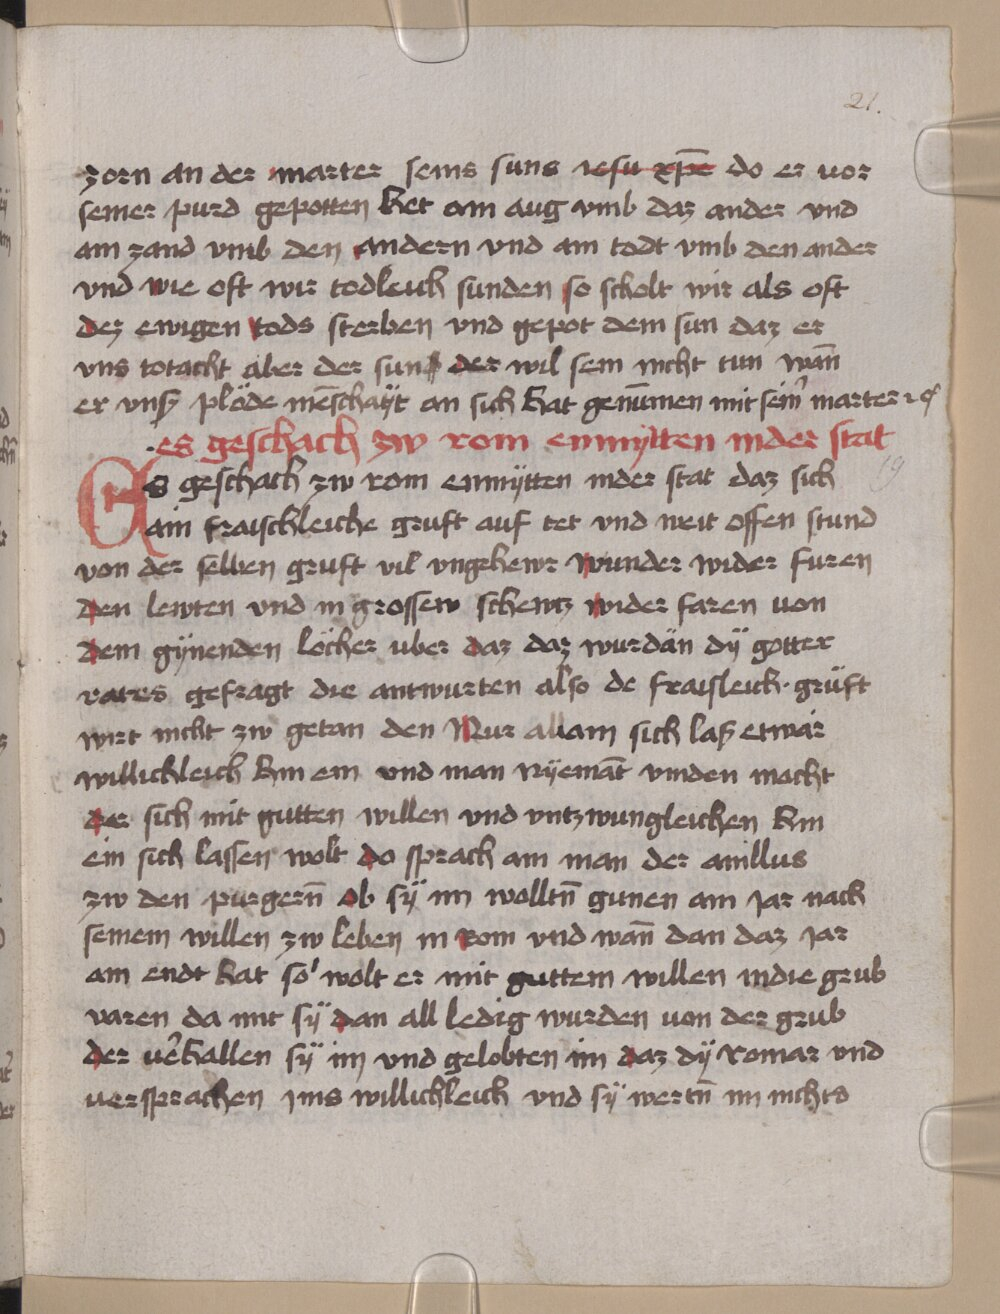 21.
zorn an der marter seins suns iesu xpē do er vor
seiner purd gepotten het ain aug vmb daz ander vnd
ain zand vmb den andern vnd ain todt vmb den ander
vnd wie oft wir todleich sunden so scholt wir als oft
dez ewigen tods sterben vnd gepot dem sun daz er
vns totacht aber der sun der wil sein nicht tun wān
er vnsß plöde mēschäyt an sich hat genūmen mit sein̄ marter
es geschach zw rom enmÿtten inder stat
19
Es geschach zw rom enmÿtten inder stat daz sich
ain fraischleiche gruft auf tet vnd weit offen stund
von der selben gruft vil vngehewr wunder wider furen
den lewten vnd in grossew schentz wider faren von
dem gÿnenden löcher vber daz daz wurdän dÿ gotter
rates gefragt die antwurten also de fraisleich grüft
wirt nicht zw getan den Nur allain sich laß etwär
willichleich hin ein vnd man nÿemāt vinden mocht
der sich mit gutten willen vnd vntzwungleichen hin
ein sich lassen wolt do sprach ain man der anillus
zw den purgern̄ ob sÿ im wolltn̄ gunen ain jar nach
seinem willen zw leben in rom vnd wān dan daz jar
ain endt hat so wolt er mit guttem willen indie grub
varen da mit sÿ dan all ledig wurden von der grub
der verhallen sÿ im vnd gelobten im daz dÿ romar vnd
versprachen jms willichleich vnd sÿ wertn̄ im nichts